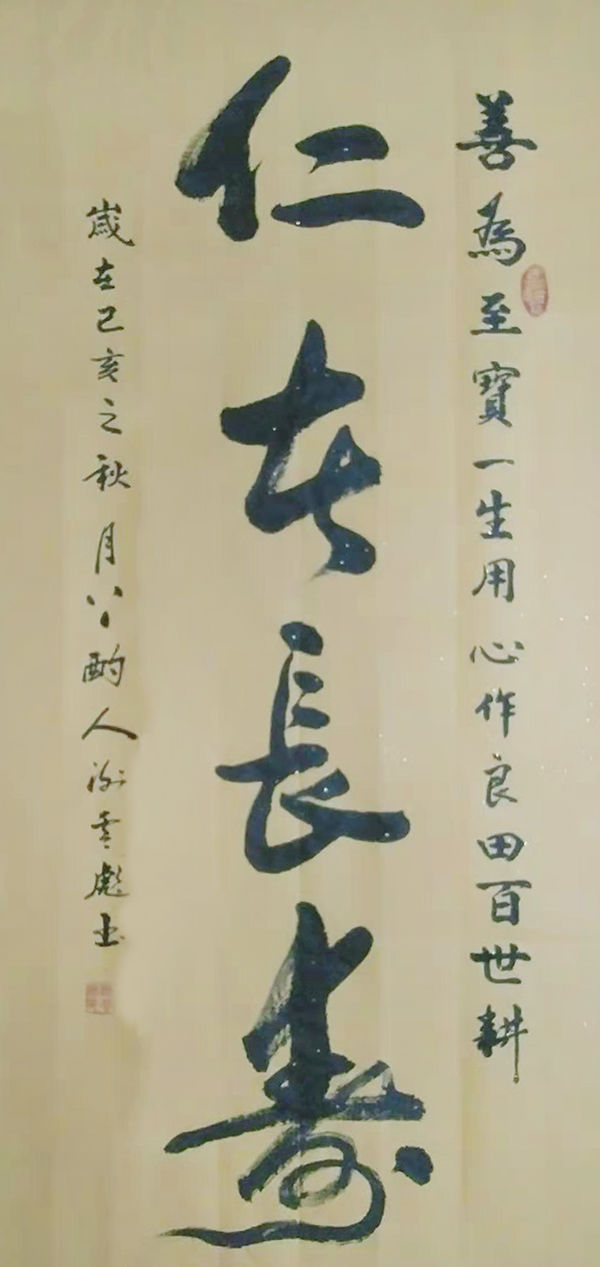 善為至寶一生用心作良田百世耕
仁者長壽
歲在己亥之秋月小酌人謝雲彪书